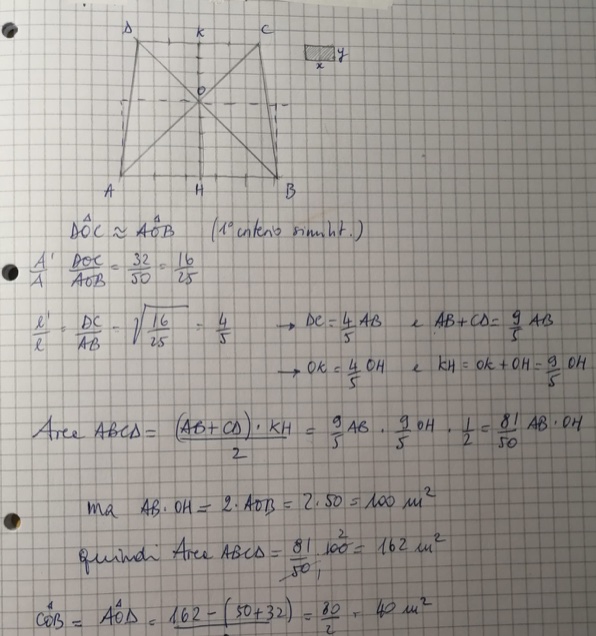 D K C
y
x
O
A H B
DÔC ≈ AÔB (1° criterio similit.)
A'/A DOC/AOB = 32/50 = 16/25
l'/l = DC/AB = √(16/25) = 4/5 → DC = 4/5 AB e AB+CD = 9/5 AB
→ OK = 4/5 OH e KH = OK + OH = 9/5 OH
Area ABCD = (AB+CD)·KH/2 = 9/5 AB · 9/5 OH · 1/2 = 81/50 AB·OH
ma AB·OH = 2·AOB = 2·50 = 100 m²
quindi Area ABCD = 81/50 · 100 2 = 162 m²
1
CÔB = AÔD = 162 - (50+32)/2 = 80/2 = 40 m²